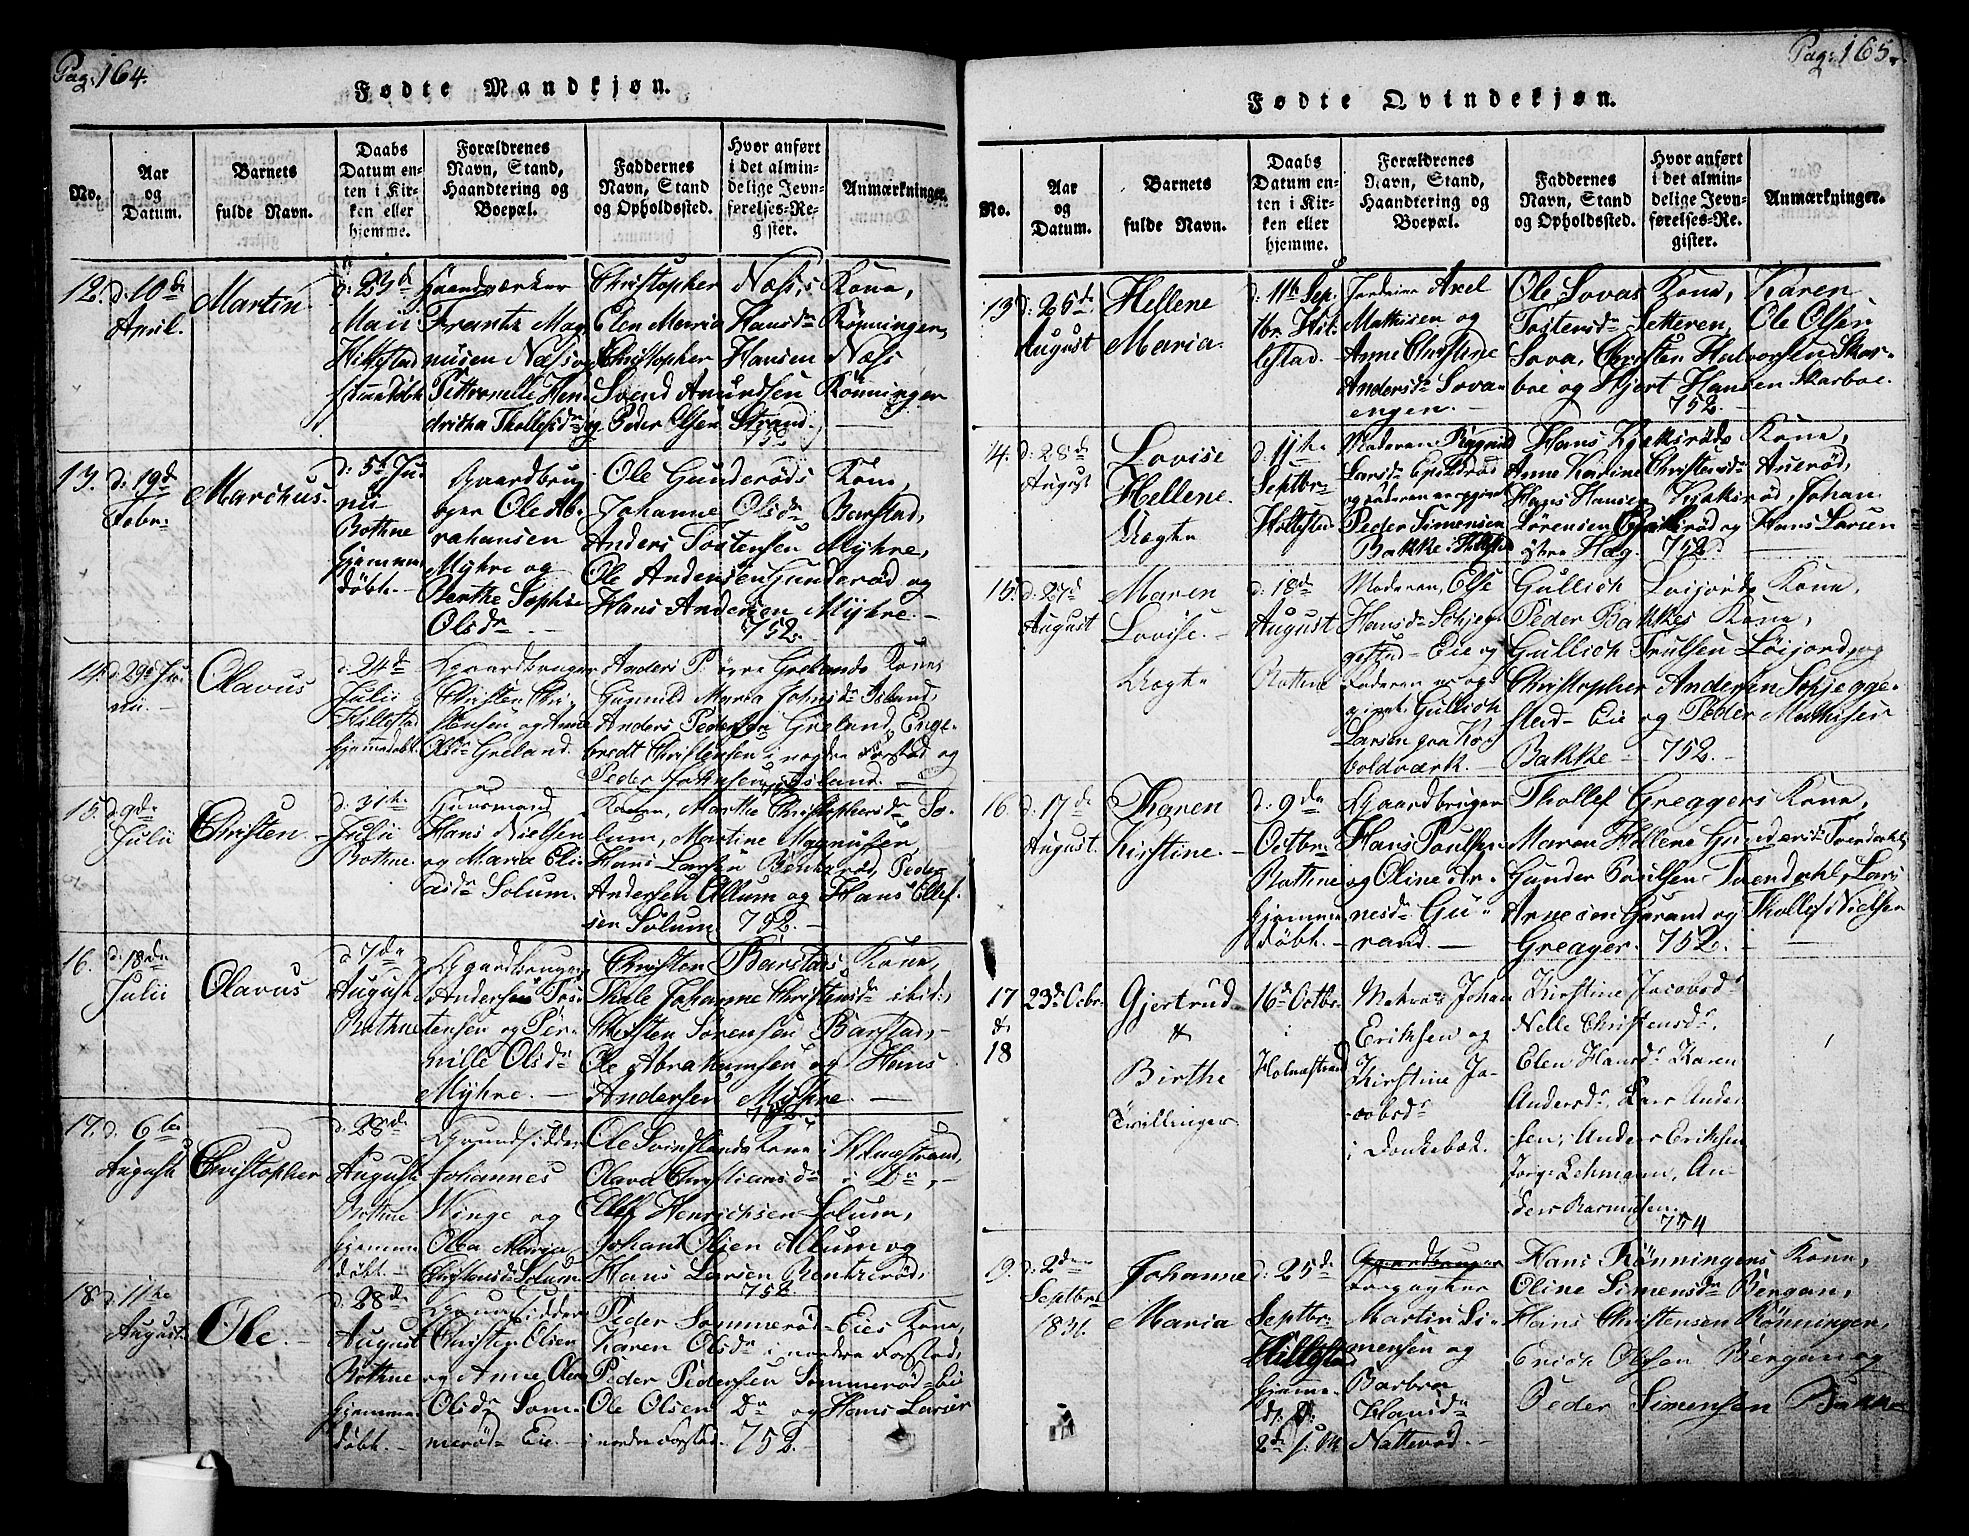 Pag: 164.
Fødte Mandkjøn.
No.
Aar og Datum.
Barnets fulde Navn.
Daabs Datum enten i Kirken eller hjemme.
Forældrenes Navn, Stand, Haandtering og Boepæl.
Faddernes Navn, Stand og Opholdssted.
Hvor anført i det almindelige Jevnførelses-Register.
Anmærkninger.
12. d: 10de April.
Martin
d: 23d Maii
Haandværker Frantz Magnusen Næss og
Christopher Næss's Kone,
Elen Maria Hansd: Rønningen,
Christopher Hansen Næss
Svend Amundsen Rønningen
Peder Olsen Strand.
752
13. d: 19de Febr:
Marchus.
d: 5te Junii
Bothne
Hjemmedøbt.
Gaardbruger Ole Abrahamsen Myhre og Berthe Sophie Olsdr
Ole Gunderøds Kone,
Johanne Olsdr Barstad,
Anders Tostensen Myhre,
Ole Andersen Gunderød og
Hans Andersen Myhre.
752.
14. d: 29d Junii.
Olavus
d: 24de Julii
Hillestad
Hjemmedøbt
Gaardbruger Christen Christensen og Anne Olsdr Greland.
Anders P. øvre Grelands Kones
Gunnild Maria Johnsdr Island,
Anders Pedersen Greland, Engebredt Christensen i nordre Forstad og
Peder Johnsen Island.
15. d: 9de Julii
Christen.
d: 31te Julii
Bothne.
Huusmand Hans Nielsen og Maria Eliasdr Solum.
Marthe Christophersdr Solum, Martine Magnusen,
Hans Larsen Bentserød, Peder
Andersen Allum og Hans Ellefsen Solum.
752.
16. d: 18de Julii
Olavus
d. 7de August
Bothne
Gaardbruger Anders Tostensen og Pernille Olsdr Myhre.
Christen Barstads Kone,
Thale Johanne Christensdr ibid:,
Christen Sørensen Barstad,
Ole Abrahamsen og Hans
Andersen Myhre.
752.
17. d. 6te August
Christopher
d. 28de August
Bothne
Hjemmedøbt.
Grundsidder Johannes Winge og Olea Maria Christensdr Solum
Ole Svinslands Kone i Holmestrand,
Olava Christiansdr i Do,
Ellef Henrichsen Solum,
Johan Olsen Allum og
Hans Larsen Bentserød,
752
18. d. 11te August.
Ole.
d: 28de August
Bothne
Hjemmedøbt.
Grundsidder Christen Olsen og Anne Olea Olsdr Sommerød-Eie.
Peder Sommerød-Eies Kone,
Karen Olsdr i nordre Forstad,
Peder Pedersen Sommerød-Eie
Ole Olsen Do og Hans Larsen
i nordre Forstad. 752.
Pag: 165.
Fødte Qvindekjøn.
No.
Aar og Datum.
Barnets fulde Navn.
Daabs Datum enten i Kirken eller hjemme.
Forældrenes Navn, Stand, Haandtering og Boepæl.
Faddernes Navn, Stand og Opholdssted.
Hvor anført i det almindelige Jevnførelses-Register.
Anmærkninger.
13 d: 25de August
Hellene Maria.
d: 11te Septbr. Hillestad.
Axel Mathisen og Anne Christine Andersdr Sovaengen.
Ole Sovas Kone, Karen
Tostensdr Setteren, Ole Olsen
Sova, Christen Halvorsen Skarboe og Hjert Hansen Skarboe.
752.
14. d: 28de August
Lovise Hellene.
Uægte
d. 11te Septbr. Hillesta.
Moderen Ragnild Larsdr
Peder Simensen Bakke i Hillestad
Hans Kjeksrøds Kone,
Anne Kirstine Christensdr Auerød,
Hans Hansen Kjeksrød, Johan
Sørensen og Hans Larsen
østre Hag. 752.
15. d: 27de August
Maren Lovise.
Uægte
d: 18de August
Bothne
Moderen, Else Hansdr Schjeggestad-Eie og Faderen er opgivet Gullich Larsen
Gullich Løijords Kone,
Peder Bakkes Kone,
Gullich Trulsen Løijord, og
Christopher Andersen Schjeggestad-Eie og Peder Mathisen
Bakke. 752.
16. d: 17de August.
Karen Kirstine.
d: 9de Octbr.
Bothne
Hjemmedøbt.
Gaardbruger Hans Poulsen og Oline Arnesdr Gurand.
Thollef Greagers Kone,
Maren Hellene Gundersdr Tvendahl,
Gunder Poulsen Tvendahl, Lars
Arnesen Gurand og Thollef Nielsen
Greager. 752.
17 & 18
23de Octbr.
Gjertrud & Birthe
Tvillinger
16de Octbr. i Holmestrand
Johan Eriksen og Kirstine Jacobsdr i Dankebæk.
Kirstine Jacobsdr
Nelle Christensdr.
Elen Hansdr Karen
Andersdr. Lars Andersen, Anders Eriksen
Jørg: Lehmann, Anders Rasmussen.
754
19. d: 2den Septbr. 1831.
Johanne Maria
d: 25de Septbr. Hillestad
Martin Simensen og Barbra Hansdr Natterød.
Hans Rønningens Kone,
Oline Simensdr Bergan,
Hans Christensen Rønningen,
Erich Olsen Bergan og
Peder Simensen Bakke